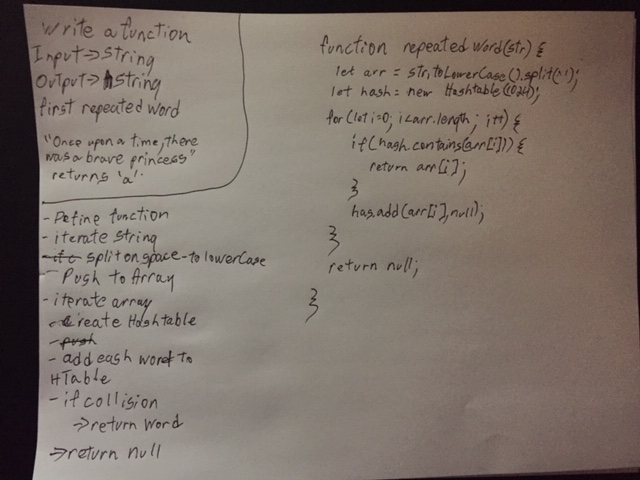 Write a function
Input → string
Output → string
first repeated word
"Once upon a time, there
was a brave princess"
returns 'a'.
- Define function
- iterate string
- split on space - to lowerCase
- push to Array
- iterate array
- create Hashtable
- push
- add each word to
HTable
- if collision
→ return word
→ return null
function repeatedWord(str) {
let arr = str.toLowerCase().split(' ');
let hash = new Hashtable(1024);
for (let i=0; i<arr.length; i++) {
if (hash.contains(arr[i])) {
return arr[i];
}
has.add(arr[i], null);
}
return null;
}